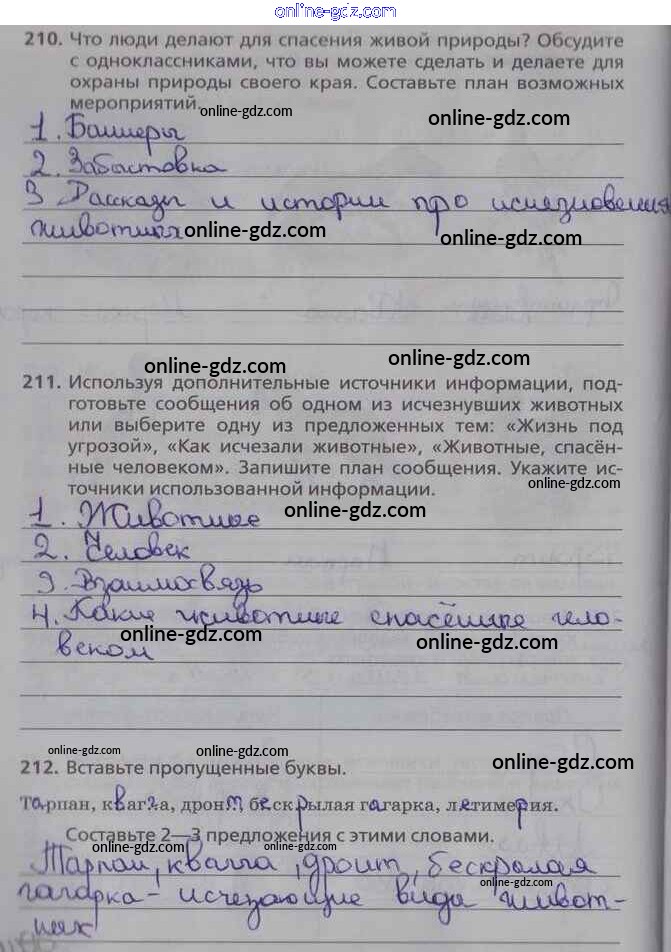 online-gdz.com
210. Что люди делают для спасения живой природы? Обсудите
с одноклассниками, что вы можете сделать и делаете для
охраны природы своего края. Составьте план возможных
мероприятий.
online-gdz.com
online-gdz.com
1. Баннеры
2. Забастовка
online-gdz.com
online-gdz.com
3 Рассказы и истории про исчезновения
животных
online-gdz.com
online-gdz.com
online-gdz.com
online-gdz.com
211. Используя дополнительные источники информации, под-
готовьте сообщения об одном из исчезнувших животных
или выберите одну из предложенных тем: «Жизнь под
угрозой», «Как исчезали животные», «Животные, спасён-
ные человеком». Запишите план сообщения. Укажите ис-
точники использованной информации.
online-gdz.com
1. Животные
online-gdz.com
2. Человек
online-gdz.com
3. Взаимосвязь
online-gdz.com
4. Какие животные спасённые чело-
веком
online-gdz.com
online-gdz.com
online-gdz.com
online-gdz.com
online-gdz.com
212. Вставьте пропущенные буквы.
Тарпан, квагга, дронт, бескрылая гагарка, летимерия.
Составьте 2—3 предложения с этими словами.
online-gdz.com
online-gdz.com
Тарпан, квагга, дронт, бескрылая
гагарка - исчезающие вида живот-
ных
online-gdz.com
online-gdz.com